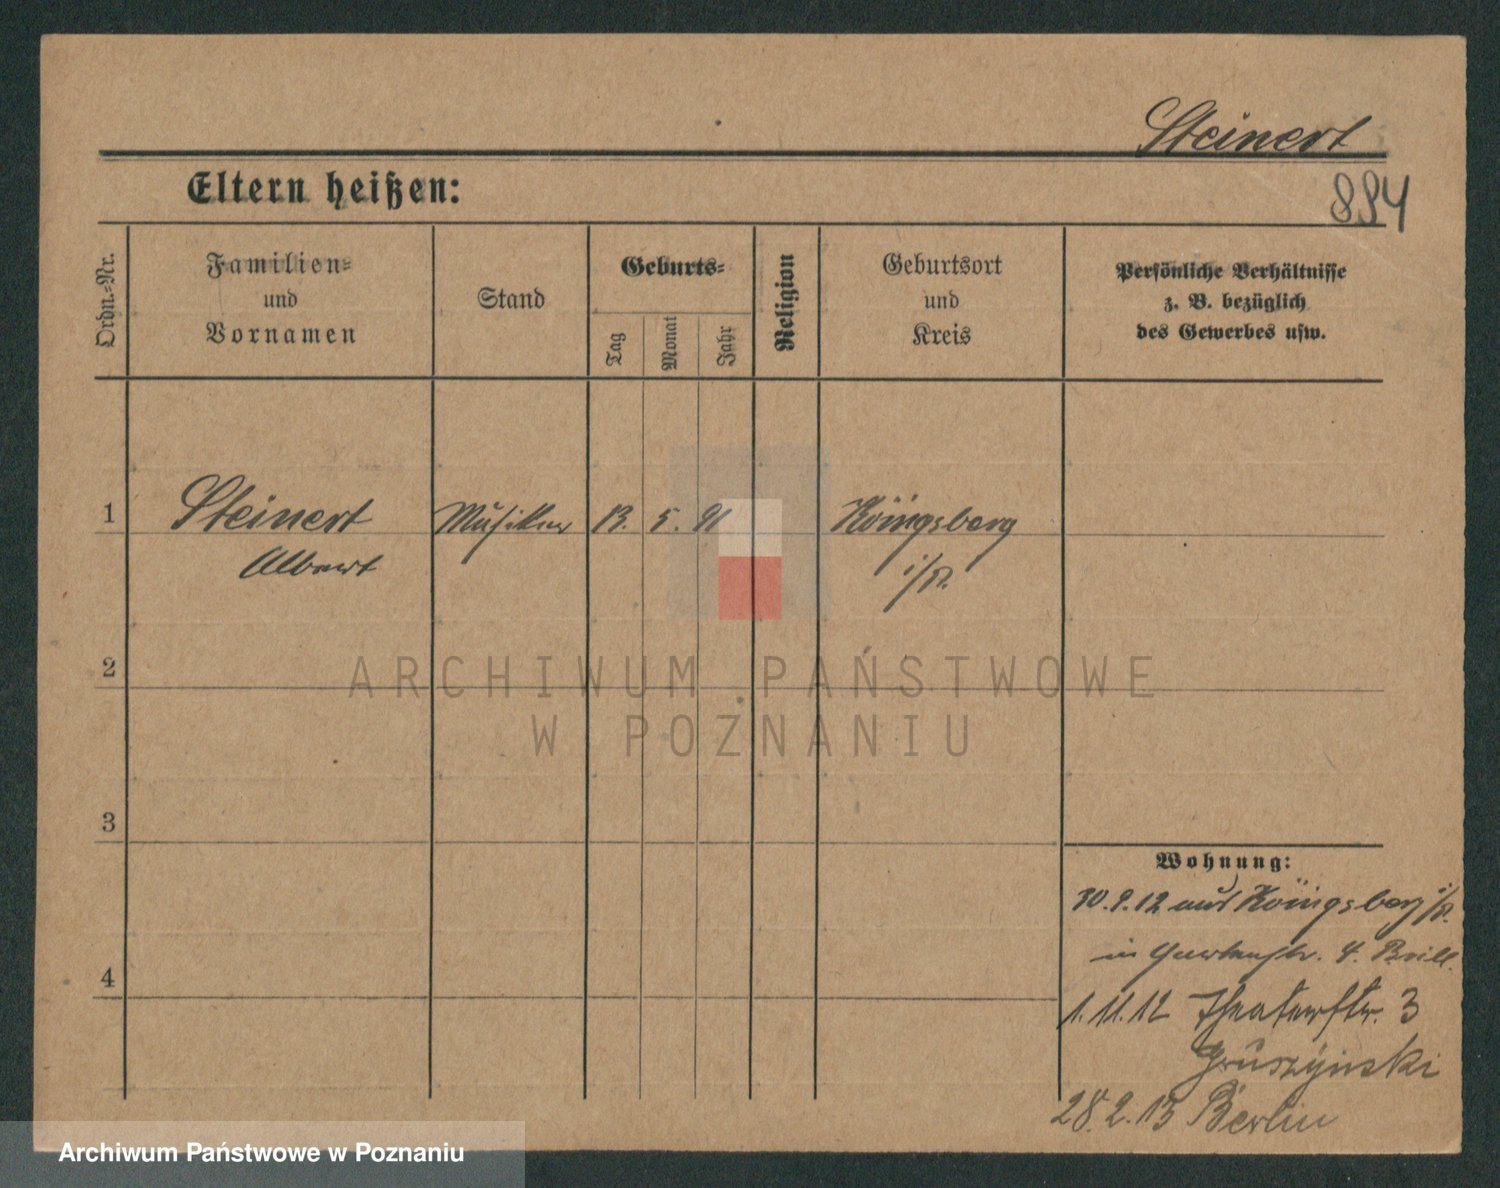 Steinert
Eltern heißen:
884
Ordn.-Nr.
Familien-
und
Vornamen
Stand
Geburts-
Tag
Monat
Jahr
Religion
Geburtsort
und
Kreis
Persönliche Verhältnisse
z. B. bezüglich
des Gewerbes usw.
1
Steinert Musiker 13. 5. 91 Königsberg
Albert i/P.
2
ARCHIWUM PAŃSTWOWE
W POZNANIU
3
Wohnung:
30.9.12 aus Königsberg i/P.
in Gartenstr. 4. Brill.
4
1.11.12 Theaterstr. 3
Gruszynski
28.2.13 Berlin
Archiwum Państwowe w Poznaniu